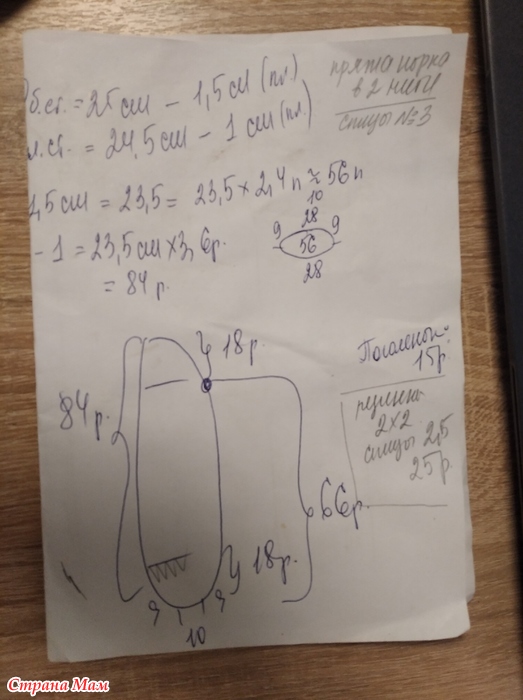 об.ст. = 25 см - 1,5 см (пл.)
дл.ст. = 24,5 см - 1 см (пл.)
пряжа норка
в 2 нити
спицы №3
1,5 см = 23,5 = 23,5 × 2,4 п ≈ 56 п
- 1 = 23,5 см × 3,6 р.
= 84 р.
10
28
9 56 9
28
18 р.
84 р.
Паголенок
15 р.
резинка
2×2
спицы 2,5
25 р.
66 р.
18 р.
9 9
10
Страна Мам